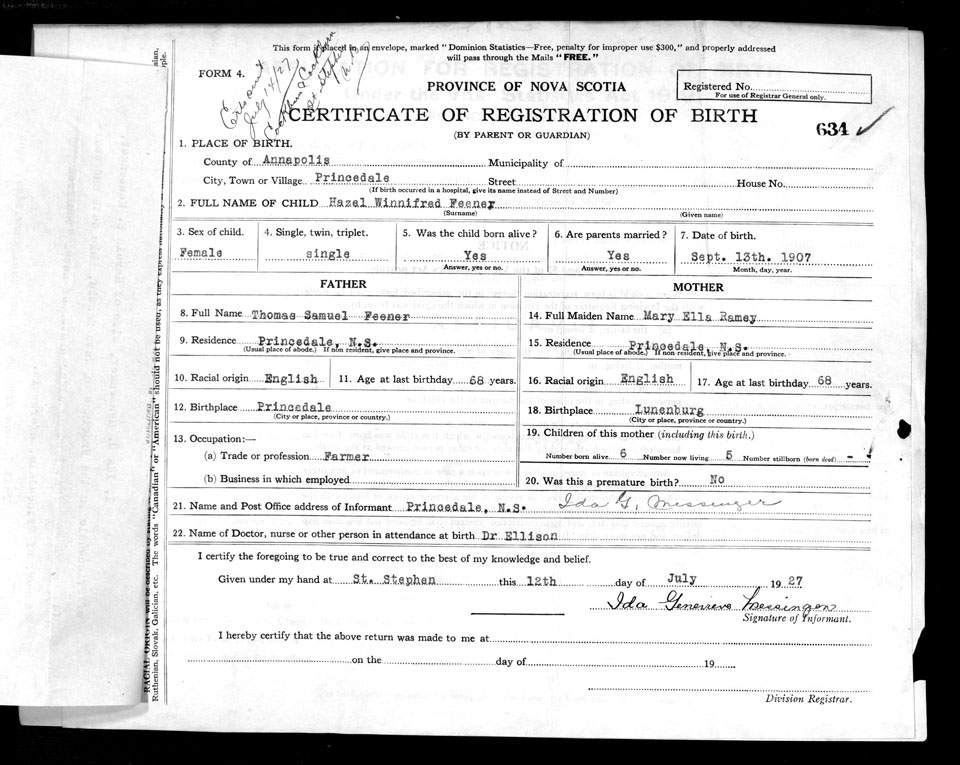 This form if placed in an envelope, marked "Dominion Statistics—Free, penalty for improper use $300," and properly addressed
will pass through the Mails "FREE."
FORM 4.
Certs sent
July 14/27
Cockburn & Cockburn
St Stephen
N.B.
PROVINCE OF NOVA SCOTIA
Registered No.
For use of Registrar General only.
CERTIFICATE OF REGISTRATION OF BIRTH
(BY PARENT OR GUARDIAN)
634 ✓
1. PLACE OF BIRTH.
County of Annapolis Municipality of
City, Town or Village Princedale Street House No.
(If birth occurred in a hospital, give its name instead of Street and Number)
2. FULL NAME OF CHILD Hazel Winnifred Feener
(Surname) (Given name)
3. Sex of child. 4. Single, twin, triplet. 5. Was the child born alive? 6. Are parents married? 7. Date of birth.
Female single Yes Yes Sept. 13th. 1907
Answer, yes or no. Answer, yes or no. Month, day, year.
FATHER MOTHER
8. Full Name Thomas Samuel Feener 14. Full Maiden Name Mary Ella Ramey
9. Residence Princedale, N.S. 15. Residence Princedale, N.S.
(Usual place of abode.) If non resident, give place and province. (Usual place of abode.) If non resident, give place and province.
10. Racial origin English 11. Age at last birthday 68 years. 16. Racial origin English 17. Age at last birthday 68 years.
12. Birthplace Princedale 18. Birthplace Lunenburg
(City or place, province or country.) (City or place, province or country.)
13. Occupation:— 19. Children of this mother (including this birth.)
(a) Trade or profession Farmer Number born alive 6 Number now living 5 Number stillborn (born dead) -
(b) Business in which employed 20. Was this a premature birth? No
21. Name and Post Office address of Informant Princedale, N.S. Ida G. Messenger
22. Name of Doctor, nurse or other person in attendance at birth Dr Ellison
I certify the foregoing to be true and correct to the best of my knowledge and belief.
Given under my hand at St. Stephen this 12th day of July 1927
Ida Genevieve Messinger
Signature of Informant.
I hereby certify that the above return was made to me at
on the day of 19
Division Registrar.
Ruthenian, Slovak, Galician, etc. The words "Canadian" or "American" should not be used, as they express